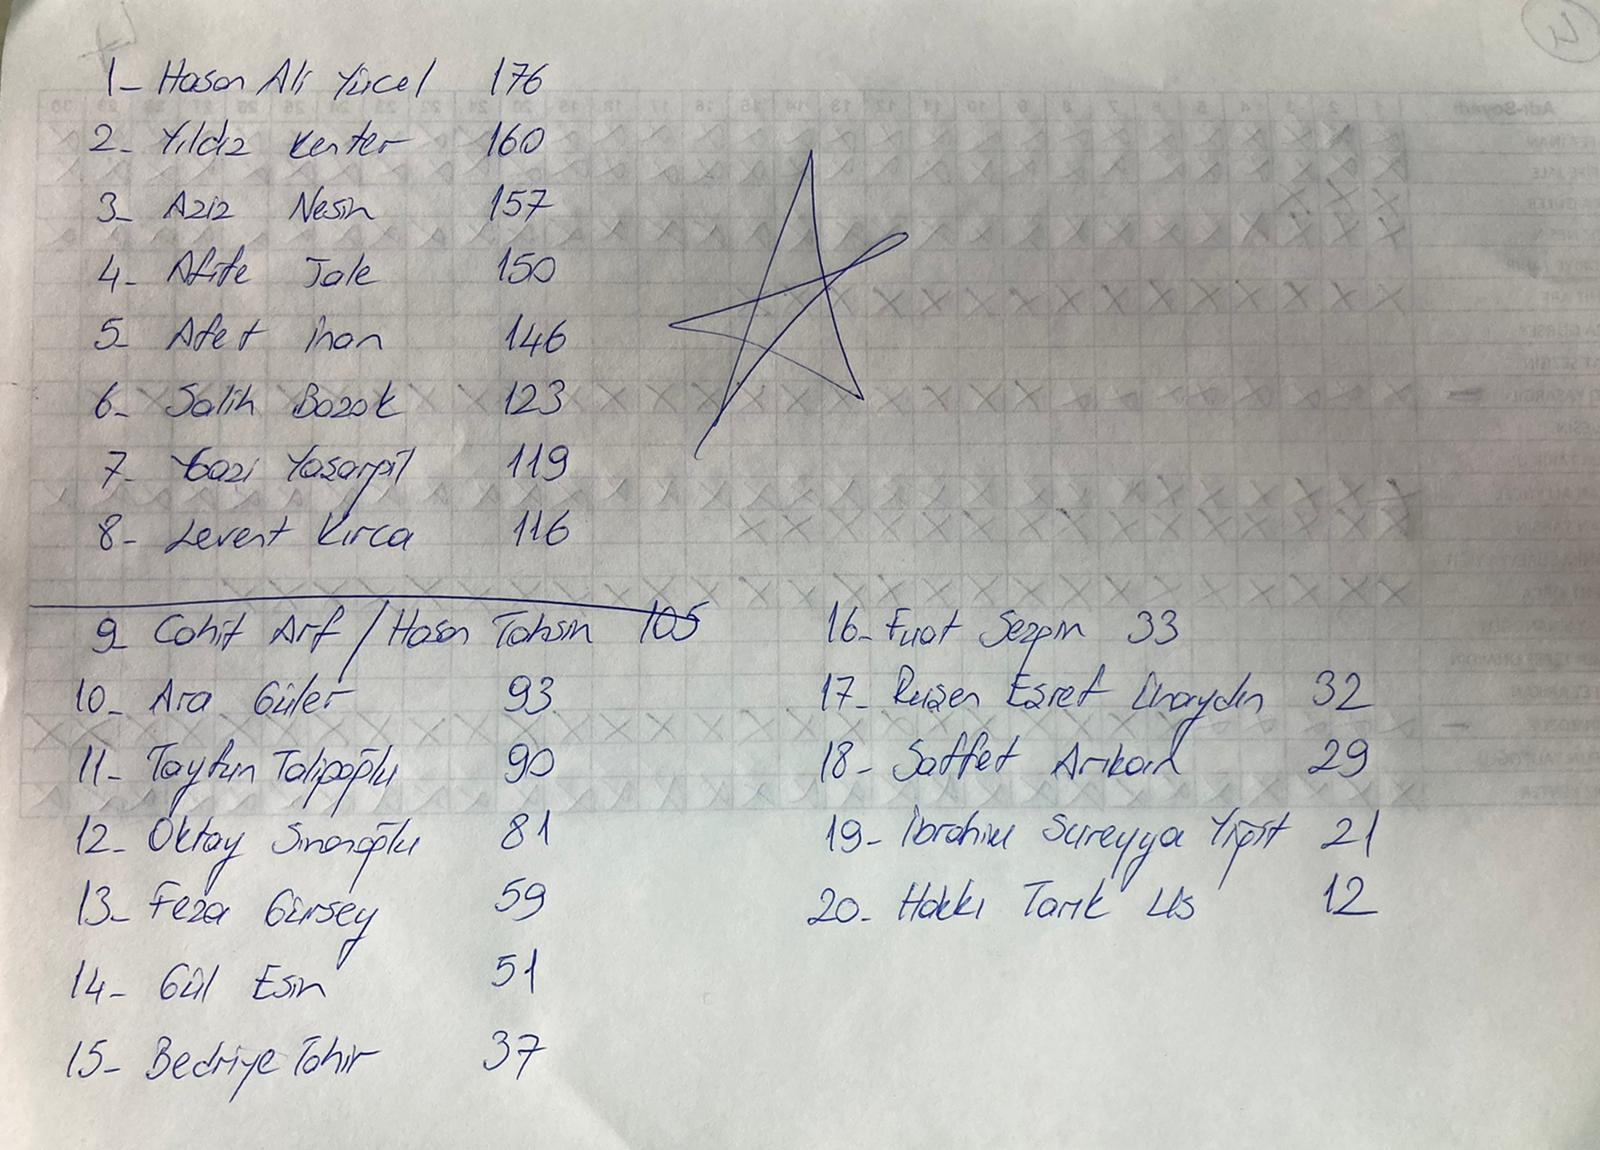 1- Hasan Ali Yücel 176
2- Yıldız Kenter 160
3- Aziz Nesin 157
4- Afife Jale 150
5- Afet İnan 146
6- Salih Bozok 123
7- Gazi Yaşargil 119
8- Levent Kırca 116
9- Cahit Arf / Hasan Tahsin 105
10- Ara Güler 93
11- Tayfun Talipoğlu 90
12- Oktay Sinanoğlu 81
13- Feza Gürsey 59
14- Gül Esin 51
15- Bedriye Tahir 37
16- Fuat Sezgin 33
17- Ruşen Eşref Ünaydın 32
18- Saffet Arıkan 29
19- İbrahim Süreyya Yiğit 21
20- Hakkı Tarık Us 12